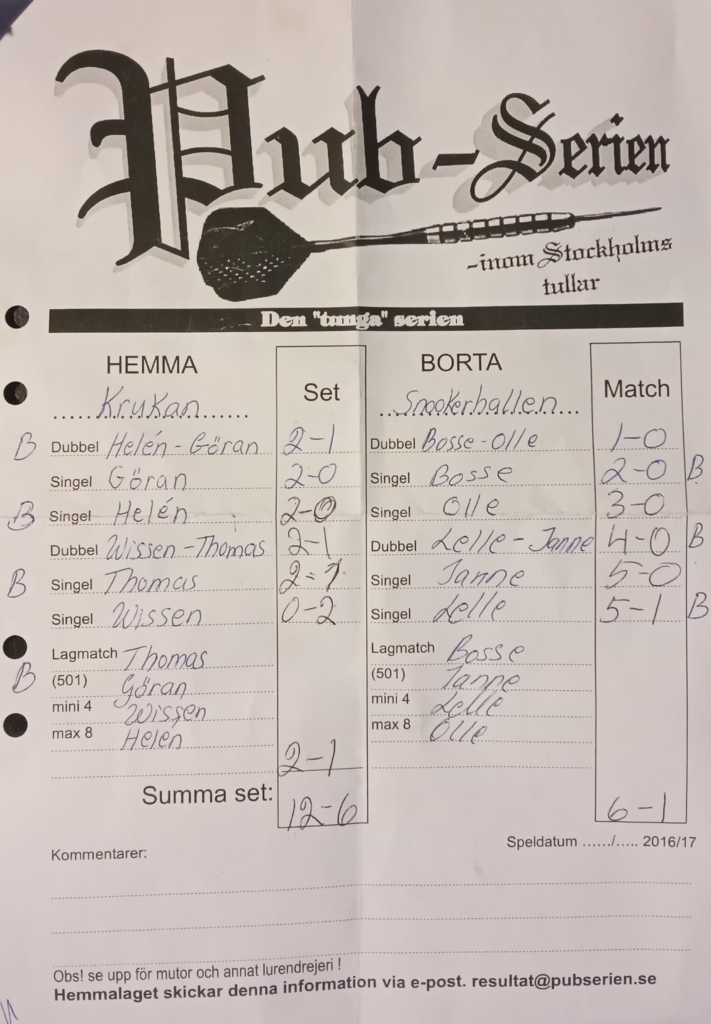 Pub-Serien
-inom Stockholms
tullar
Den "tunga" serien
HEMMA Set BORTA Match
.....Krukan...... ...Snookerhallen...
B Dubbel Helén - Göran 2-1 Dubbel Bosse - Olle 1-0
Singel Göran 2-0 Singel Bosse 2-0 B
B Singel Helén 2-0 Singel Olle 3-0
Dubbel Wissen - Thomas 2-1 Dubbel Lelle - Janne 4-0 B
B Singel Thomas 2-1 Singel Janne 5-0
Singel Wissen 0-2 Singel Lelle 5-1 B
Lagmatch Thomas Lagmatch Bosse
B (501) Göran (501) Janne
mini 4 Wissen mini 4 Lelle
max 8 Helén max 8 Olle
2-1
Summa set: 12-6 6-1
Speldatum ....../..... 2016/17
Kommentarer:
Obs! se upp för mutor och annat lurendrejeri !
Hemmalaget skickar denna information via e-post. resultat@pubserien.se